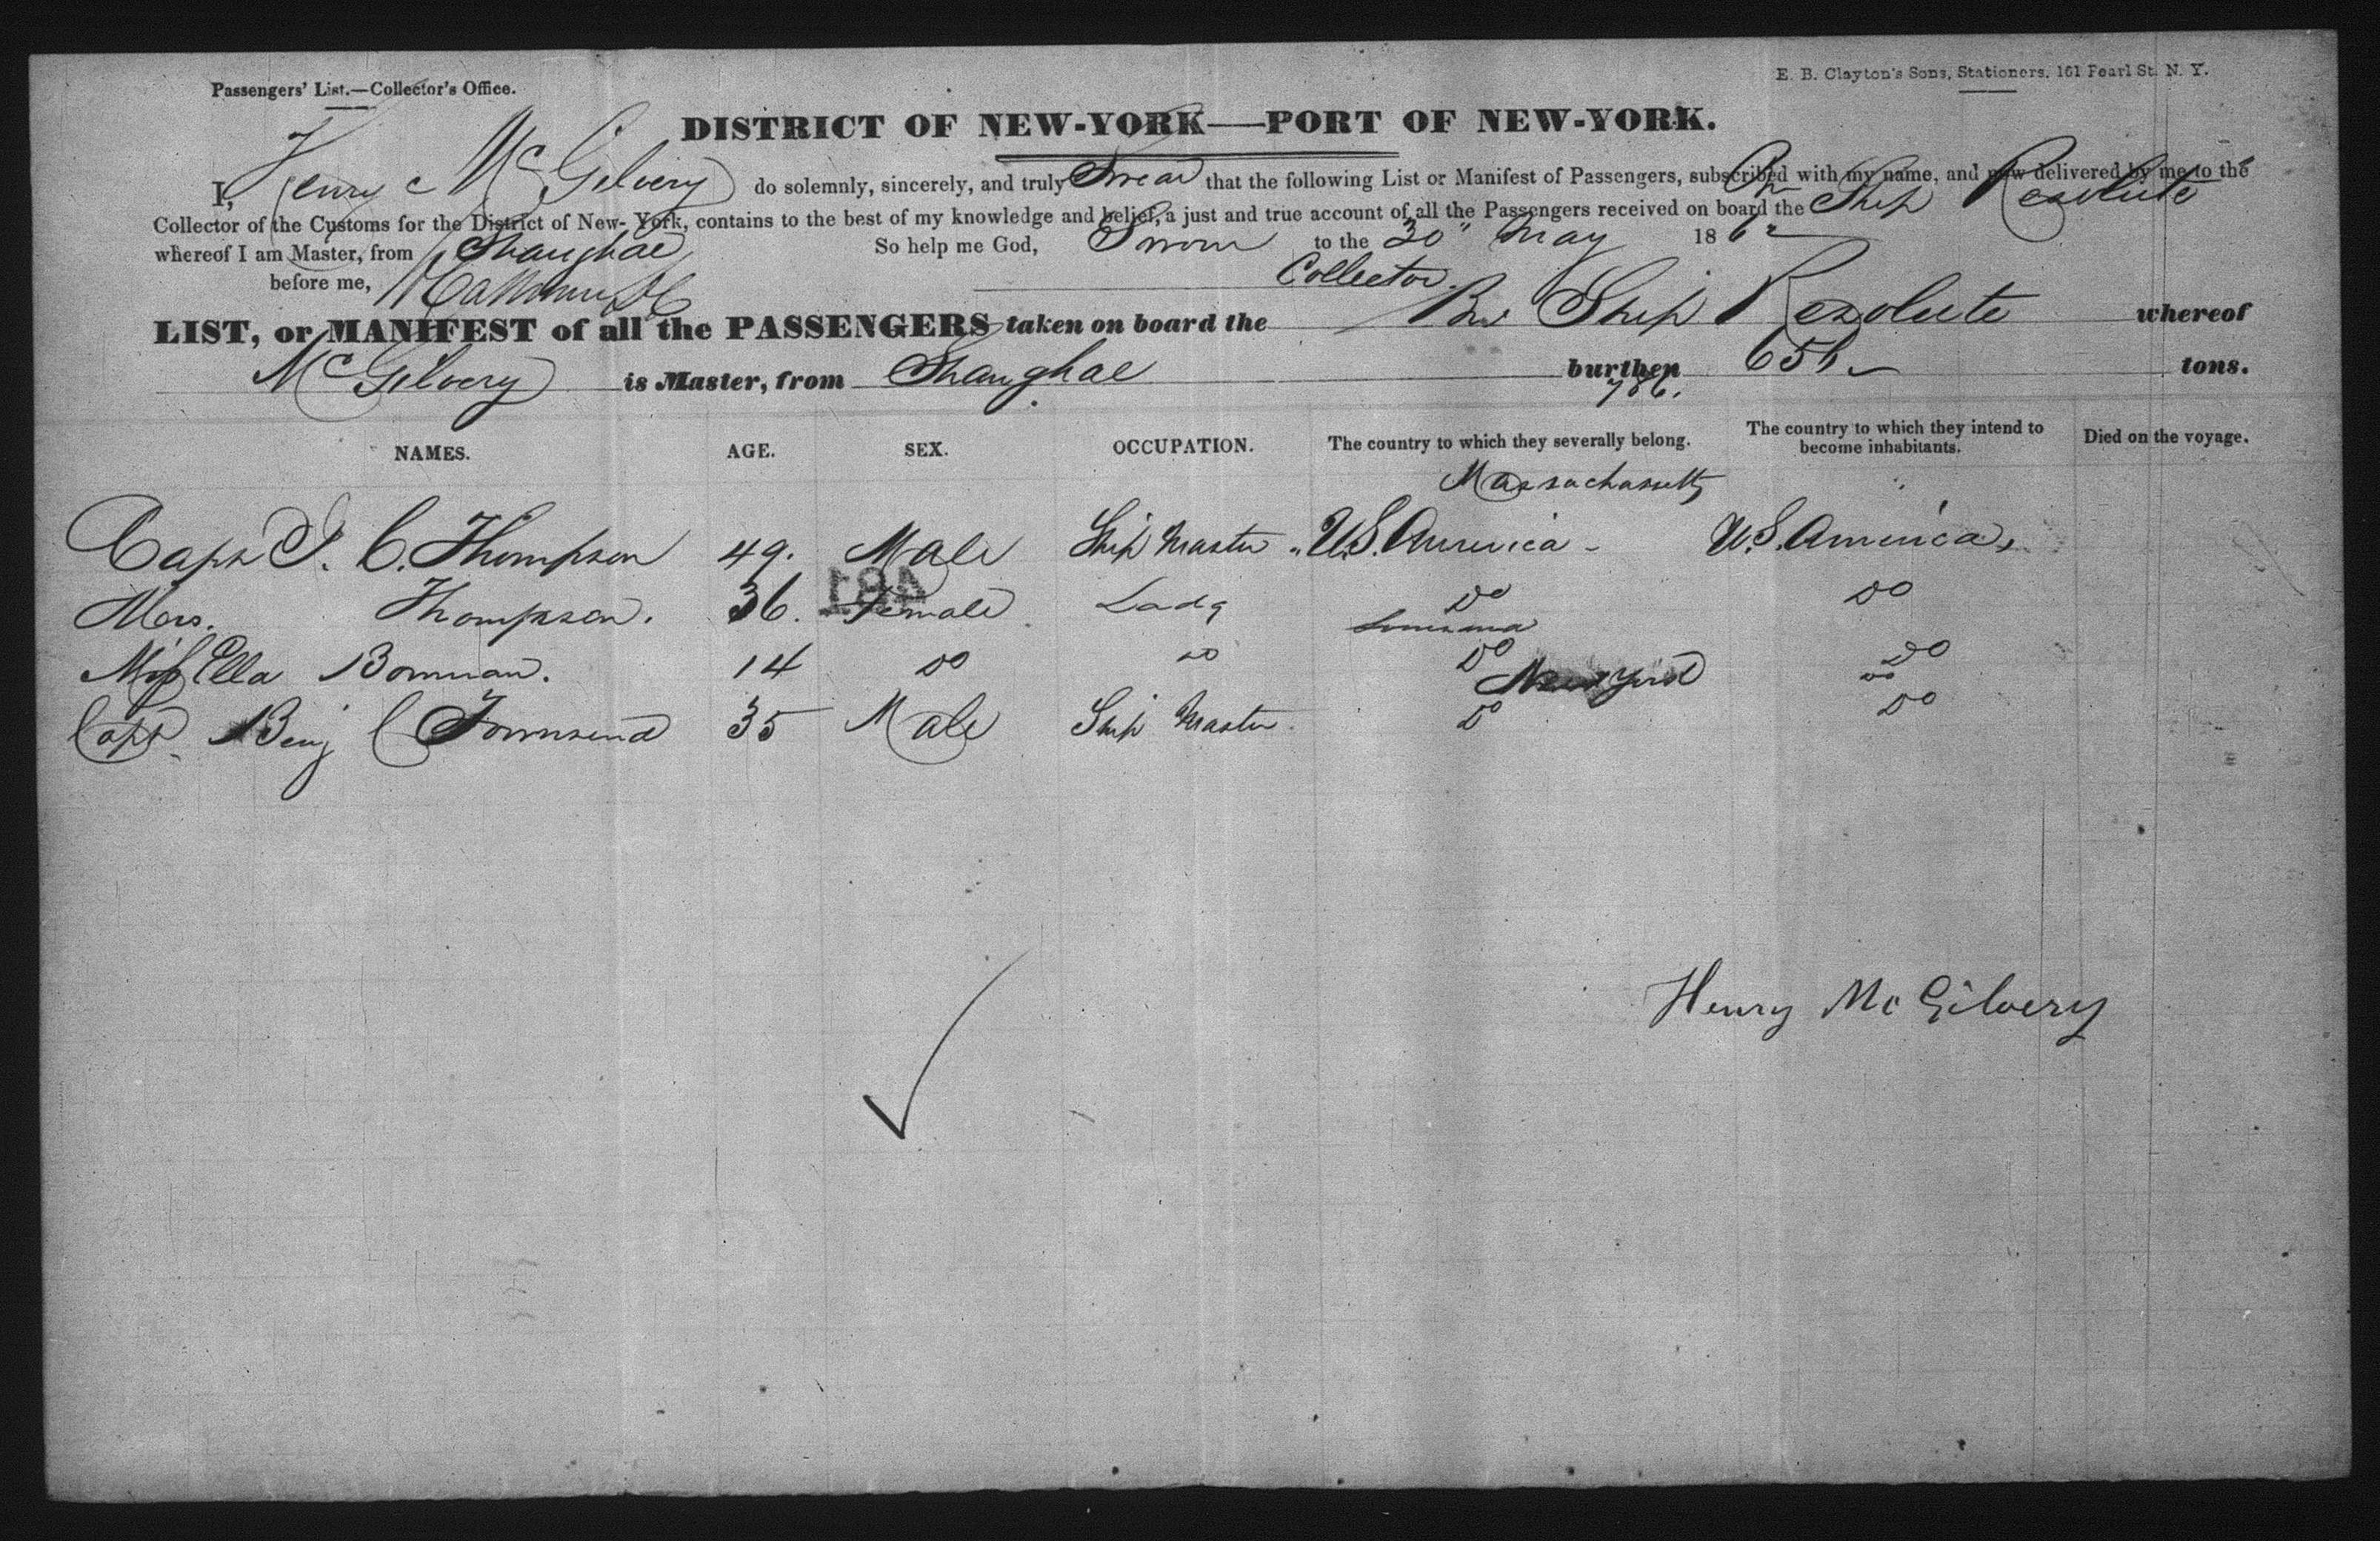 Passengers' List.—Collector's Office.
E. B. Clayton's Sons, Stationers, 161 Pearl St. N. Y.
DISTRICT OF NEW-YORK—PORT OF NEW-YORK.
I, Henry Mc Gilvery do solemnly, sincerely, and truly Swear that the following List or Manifest of Passengers, subscribed with my name, and now delivered by me to the
Collector of the Customs for the District of New-York, contains to the best of my knowledge and belief, a just and true account of all the Passengers received on board the Ship Resolute
whereof I am Master, from Shanghae So help me God, Sworn to the 30" May 186
before me, Collector.
LIST, or MANIFEST of all the PASSENGERS taken on board the Br Ship Resolute whereof
Mc Gilvery is Master, from Shanghae burthen tons.
786.
NAMES. AGE. SEX. OCCUPATION. The country to which they severally belong. The country to which they intend to become inhabitants. Died on the voyage.
Massachusetts
Capt C. Thompson 49. Male Ship Master U.S. America U.S. America
Mrs. Thompson. 36. Female Lady Do Do
481
Louisiana
Miss Ella Bowman. 14 Do Do Do Do
New York Do
Capt Benj C Townsend 35 Male Ship Master Do Do
Henry Mc Gilvery